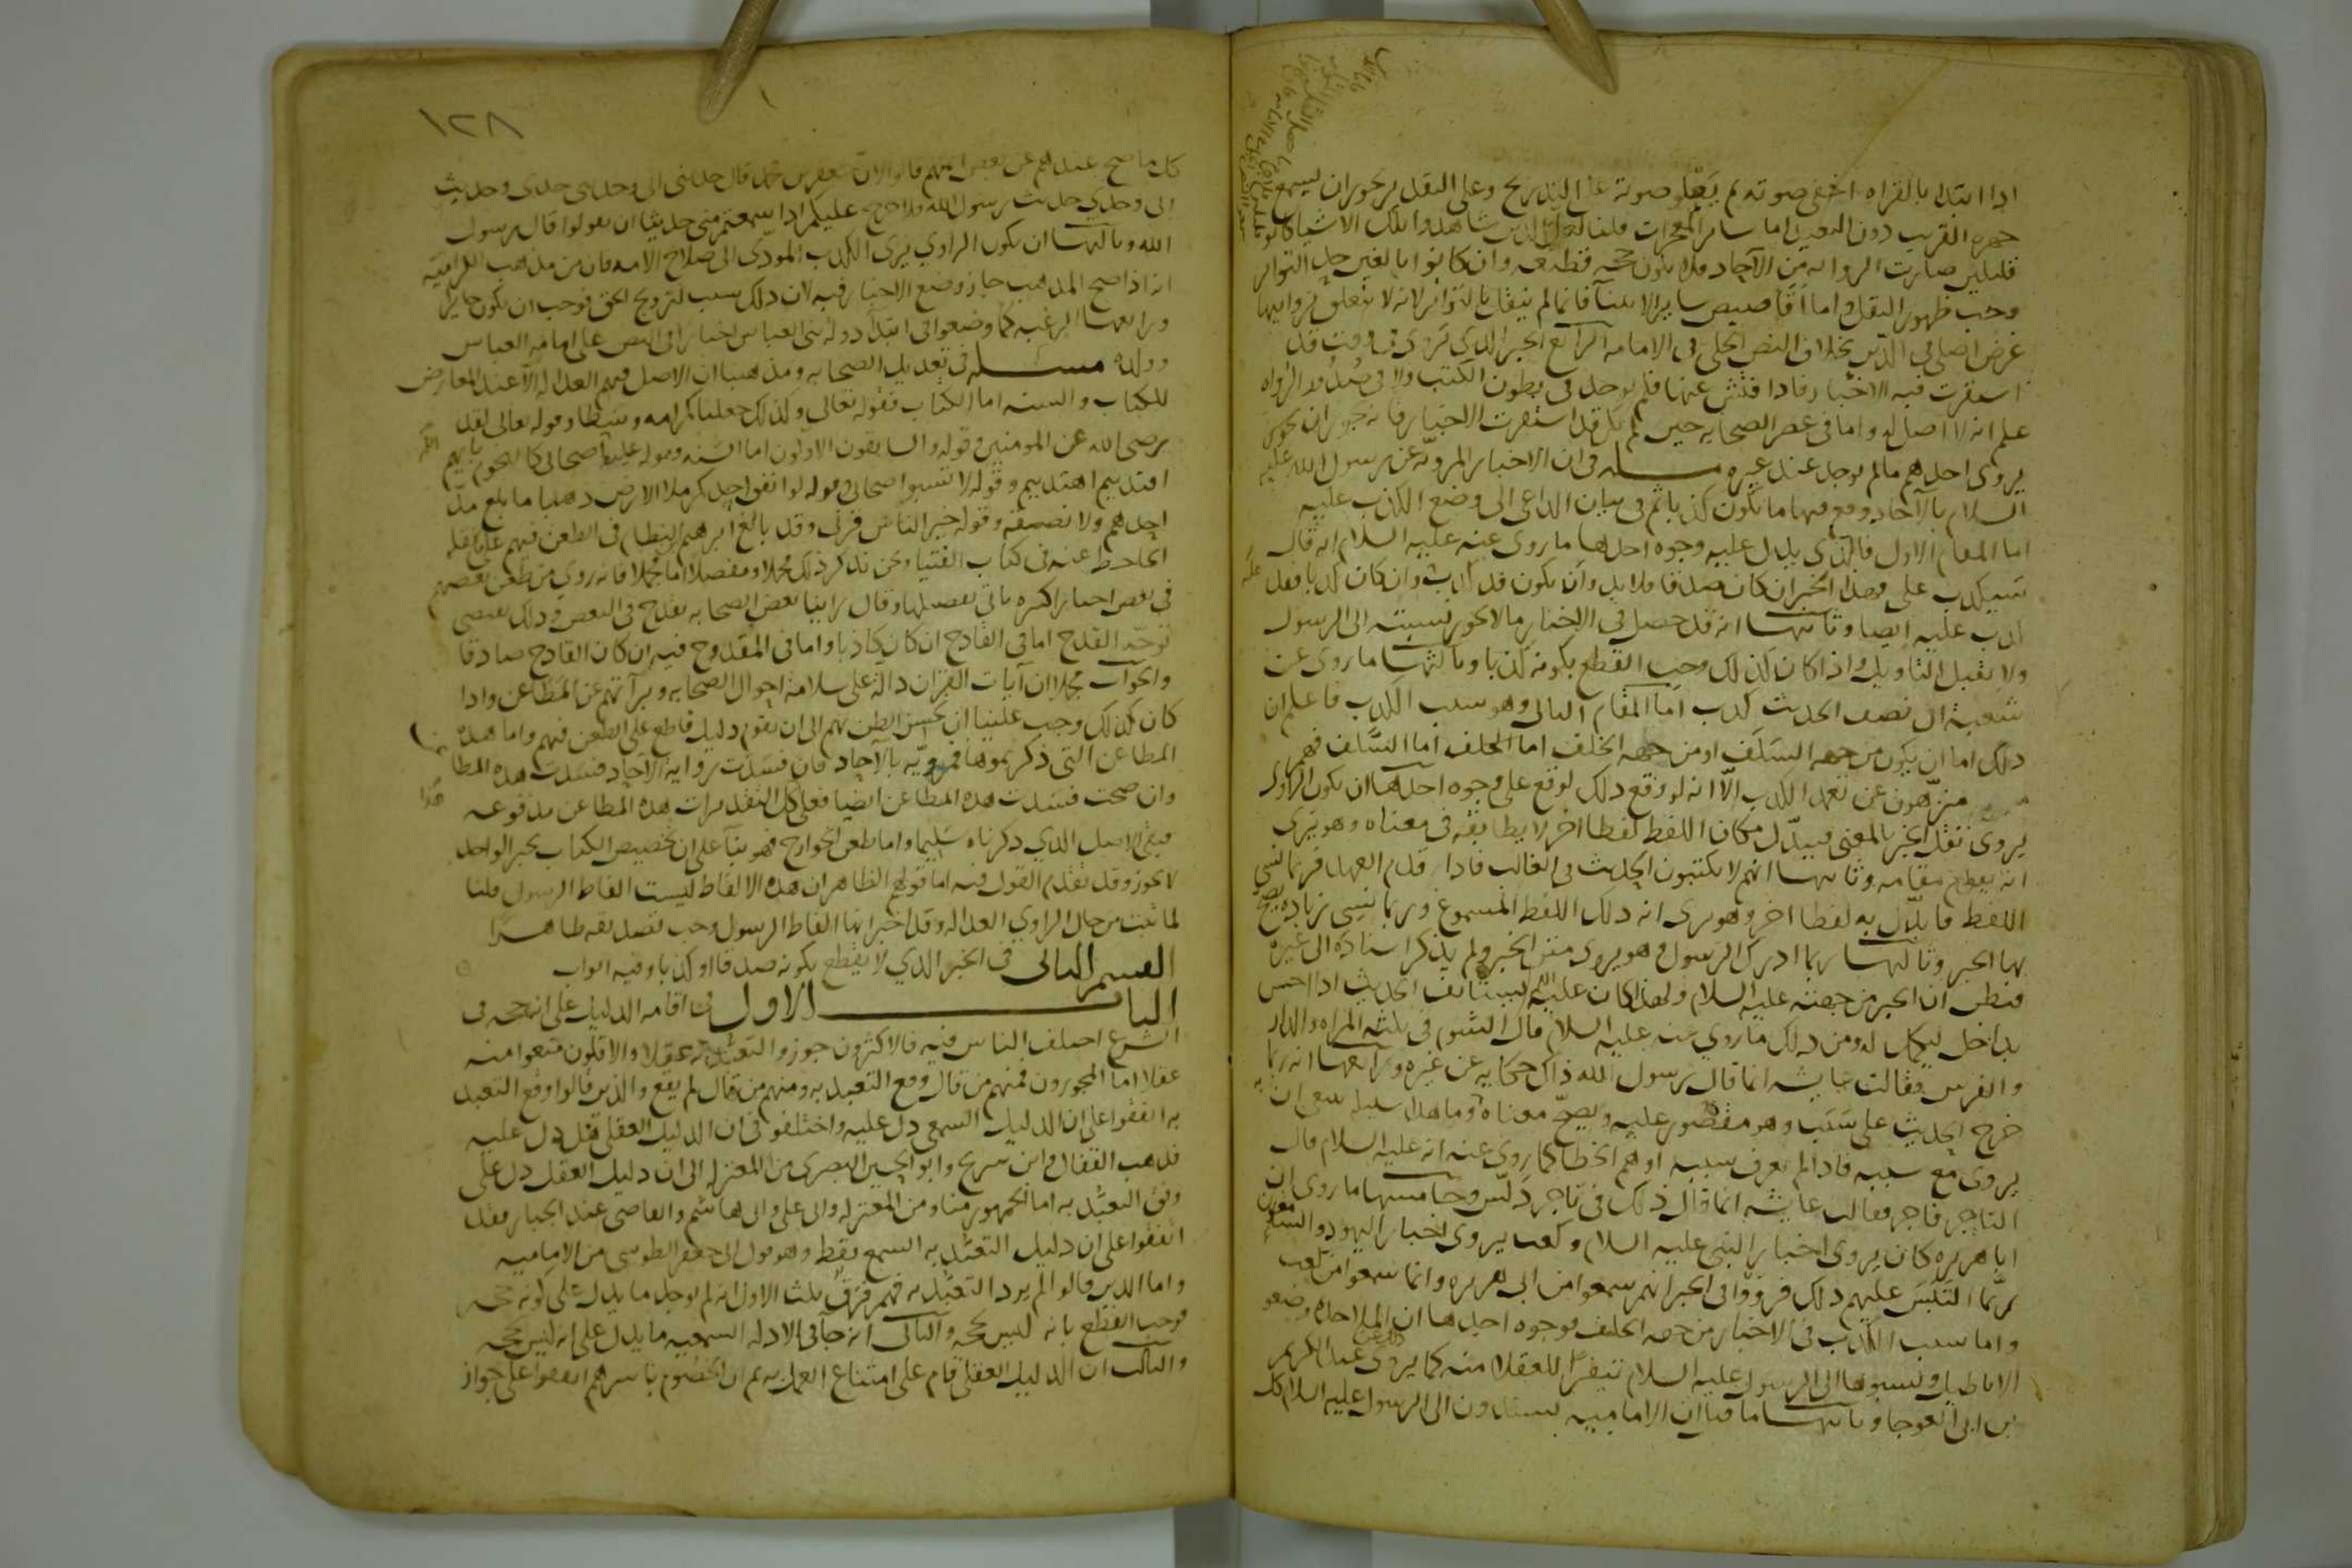 اذا ابتدا بالقراه اخفى صوته ثم يعلو صوته على التدريج وعلى النقل لا يجوز ان يسمع
جهره القريب دون البعيد اما ساير المعجزات قلنا لعل الذين شاهدوا تلك الاشيا كانوا
قليلين صارت الروايه من الآحاد فلا يكون حجه قطعيه وان كانوا بالغين حد التواتر
وجب ظهور النقل واما اقاصيص ساير الانبيا فانما لم ينقل بالتواتر لانه لا يتعلق بروايتها
غرض اصلي في الدين بخلاف النص الجلي في الامامه الرابع الخبر الذي يروى في وقت قد
استقرت فيه الاخبار فاذا فتش عنها فلم يوجد في بطون الكتب ولا في صدور الرواه
علم انه لا اصل له واما في عصر الصحابه حين لم تكن قد استقرت الاخبار فانه يجوز ان
يروى احدهم ما لم يوجد عند غيره مسله في ان الاخبار المرويه عن رسول الله عليه
السلام بالآحاد وقع فيها ما يكون كذبا ثم في بيان الداعي الى وضع الكذب عليه
اما المقام الاول فالذي يدل عليه وجوه احدها ما روى عنه عليه السلام انه قال
سيكذب على فهذا الخبر ان كان صدقا فلا بد وان يكون قد كذب وان كان كذبا فقد
كذب عليه ايضا وثانيها انه قد حصل في الاخبار ما لا يجوز نسبته الى الرسول
ولا يقبل التاويل واذا كان كذلك وجب القطع بكونه كذبا وثالثها ما روى عن
شعبه ان نصف الحديث كذب اما المقام الثاني وهو سبب الكذب فاعلم ان
ذلك اما ان يكون من جهه السلف او من جهه الخلف اما السلف فهم
منزهون عن تعمد الكذب الا انه لو وقع ذلك لوقع على وجوه احدها ان يكون الراوي
يروى نقل الخبر بالمعنى فيبدل مكان اللفظ لفظا اخر لا يطابقه في معناه وهو يرى
انه يقوم مقامه وثانيها انهم لا يكتبون الحديث في الغالب فاذا قدم العهد فربما نسي
اللفظ فابدل به لفظا اخر وهو يرى انه ذلك اللفظ المسموع وربما نسى زياده يصح
بها الخبر وثالثها ربما ادرك الرسول وهو يروى متن الخبر ولم يذكر اسناده الى غيره
فيظن ان الخبر من جهته عليه السلام ولهذا كان عليه السلم يستانف الحديث اذا احس
بداخل ليكمل له ومن ذلك ما روى عنه عليه السلام قال الشوم في ثلثه المراه والدار
والفرس فقالت عايشه انما قال رسول الله ذاك حكايه عن غيره ورابعها انه ربما
خرج الحديث على سبب وهو مقصور عليه ويصح معناه وما هذا سبيله ينبغى ان
يروى مع سببه فاذا لم يعرف سببه اوهم الخطا كما روى عنه انه عليه السلام قال
التاجر فاجر فقالت عايشه انما قال ذلك في تاجر دلس وخامسها ما روى ان
ابا هريره كان يروى اخبار النبي عليه السلام وكعب يروى اخبار اليهود والسامعون
ربما التبس عليهم ذلك فرووا في الخبر انهم سمعوا من ابى هريره وانما سمعوا من كعب
واما سبب الكذب في الاخبار من جهه الخلف فوجوه احدها ان الملاحده وضعوا
الاباطيل ونسبوها الى الرسول عليه السلام تنفيرا للعقلا منه كما يروى عن عبد الكريم
بن ابى العوجا وثانيها ما قيل ان الاماميه يسندون الى الرسول عليه السلام كل
١٢٨
كل ما صح عندهم عن بعض ايمتهم قالوا لان جعفر بن محمد قال حدثنى ابى وحدث ابى جدى وحديث
ابى وجدي حديث رسول الله ولا حرج عليكم اذا سمعتم منى حديثا ان تقولوا قال رسول
الله وثالثها ان يكون الراوي يرى الكذب المودي الى صلاح الامه فان من مذهب الكراميه
انه اذا صح المذهب جاز وضع الاخبار فيه لان ذلك سبب لترويج الحق فوجب ان يكون جايزا
ورابعها الرغبه كما وضعوا في ابتدا دوله بنى العباس اخبارا في النص على امامه العباس
وولده مسله في تعديل الصحابه ومذهبنا ان الاصل فيهم العداله الا عند المعارض
للكتاب والسنه اما الكتاب فقوله تعالى وكذلك جعلناكم امه وسطا وقوله تعالى لقد
رضى الله عن المومنين وقوله والسابقون الاولون اما السنه فقوله عليه اصحابى كالنجوم بايهم
اقتديتم اهتديتم وقوله لا تسبوا اصحابى وقوله لو انفق احدكم ملا الارض ذهبا ما بلغ مد
احدهم ولا نصيفه وقوله خير الناس قرنى وقد بالغ ابرهيم النظام في الطعن فيهم على ما نقله
الجاحظ عنه في كتاب الفتيا ونحن نذكر ذلك مجملا ومفصلا اما مجملا فانه روى من طعن بعضهم
في بعض اخبارا كثيره ياتى تفصيلها وقال راينا بعض الصحابه يقدح في البعض وذلك يقتضى
توجه القدح اما في القادح ان كان كاذبا واما في المقدوح فيه ان كان القادح صادقا
والجواب مجملا ان آيات القران داله على سلامه احوال الصحابه وبرآتهم عن المطاعن واذا
كان كذلك وجب علينا ان نحسن الظن بهم الى ان يقوم دليل قاطع على الطعن فيهم واما هذه
المطاعن التى ذكرتموها فمرويه بالآحاد فان فسدت روايه الآحاد فسدت هذه المطاعن
وان صحت فسدت هذه المطاعن ايضا فعلى كل التقديرات هذه المطاعن مدفوعه
فبقى الاصل الذي ذكرناه سليما واما طعن الخوارج فهو بنآ على ان تخصيص الكتاب بخبر الواحد
لا يجوز وقد تقدم القول فيه اما قولهم الظاهر ان هذه الالفاظ ليست الفاظ الرسول قلنا
لما ثبت من حال الراوي العداله وقد اخبر انها الفاظ الرسول وجب تصديقه ظاهرا
القسم الثانى في الخبر الذي لا يقطع بكونه صدقا او كذبا وفيه ابواب
الباب الاول في اقامه الدليل على انه حجه في
الشرع اختلف الناس فيه فالاكثرون جوزوا التعبد به عقلا والاقلون منعوا منه
عقلا اما المجوزون فمنهم من قال وقع التعبد به ومنهم من قال لم يقع والذين قالوا وقع التعبد
به اتفقوا على ان الدليل السمعى دل عليه واختلفوا في ان الدليل العقلى هل دل عليه
فذهب القفال وابن سريج وابو الحسين البصرى من المعتزله الى ان دليل العقل دل على
وقوع التعبد به اما الجمهور منا ومن المعتزله كابى على وابى هاشم والقاضى عبد الجبار فقد
اتفقوا على ان دليل التعبد به السمع فقط وهو قول ابى جعفر الطوسى من الاماميه
واما الذين قالوا لم يرد التعبد به فهم فرق ثلث الاول انه لم يوجد ما يدل على كونه حجه
فوجب القطع بانه ليس بحجه والثانى انه جآ في الادله السمعيه ما يدل على انه ليس بحجه
والثالث ان الدليل العقلى قام على امتناع العمل به ثم ان الخصوم باسرهم اتفقوا على جواز